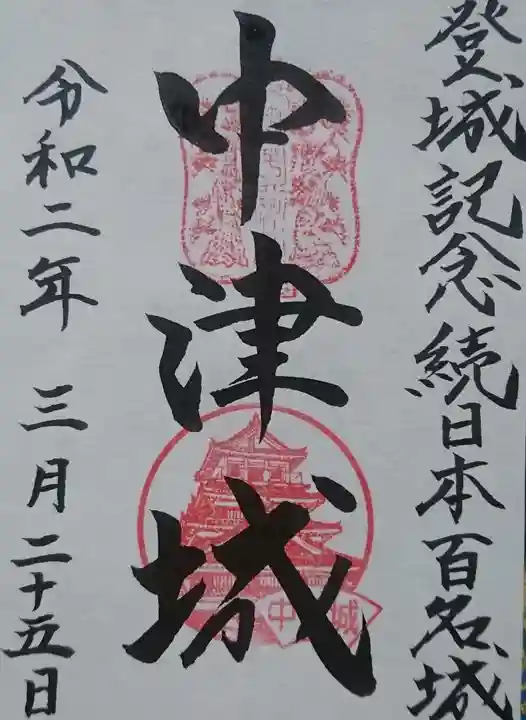 登城記念続日本百名城
中津城
令和二年 三月二十五日